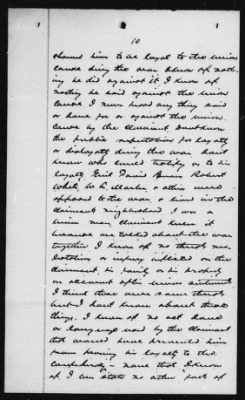 10
showed him to be loyal to the union
cause during the war. I know of noth-
ing he did against it I know of
nothing he said against the union
cause I never heard any thing said
or done for or against the union
cause by the claimant Davidson
the public reputation for loyalty
or disloyalty during the war I dont
know who could testify as to his
loyalty Robert
White W. L. & others were
opposed to the war & lived in the
claimants neighborhood I was a
union man claimant knew it
because we talked about the war
together I know of no threats mo-
lestation or injury inflicted on the
claimant, his family or his property
on account of his union sentiments
I think there was some threats
but I dont know about these
things. I know of no act done
or language used by the claimant
that would have prevented him
from proving his loyalty to the
Confederacy - none that I know
of I can state no other fact of